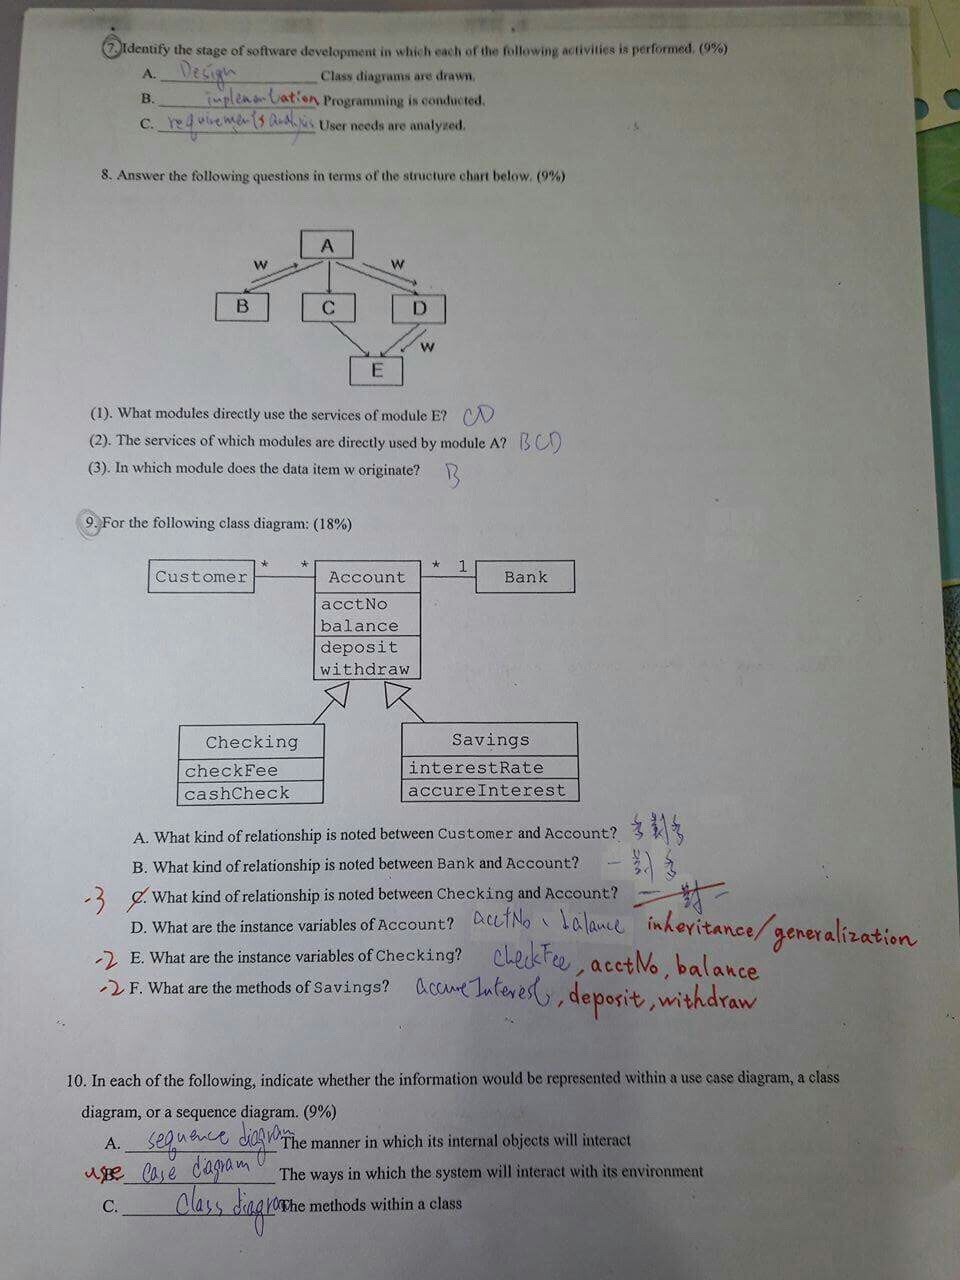 7. Identify the stage of software development in which each of the following activities is performed. (9%)
A. Design Class diagrams are drawn.
B. implementation Programming is conducted.
C. requirements analysis User needs are analyzed.
8. Answer the following questions in terms of the structure chart below. (9%)
A
W W
B C D
W
E
(1). What modules directly use the services of module E? CD
(2). The services of which modules are directly used by module A? BCD
(3). In which module does the data item w originate? B
9. For the following class diagram: (18%)
* * * 1
Customer Account Bank
acctNo
balance
deposit
withdraw
Checking Savings
checkFee interestRate
cashCheck accureInterest
A. What kind of relationship is noted between Customer and Account? 多對多
B. What kind of relationship is noted between Bank and Account? 一對多
-3 C. What kind of relationship is noted between Checking and Account? 一對一
D. What are the instance variables of Account? acctNo、balance inheritance/generalization
-2 E. What are the instance variables of Checking? checkFee, acctNo, balance
-2 F. What are the methods of Savings? accureInterest, deposit, withdraw
10. In each of the following, indicate whether the information would be represented within a use case diagram, a class
diagram, or a sequence diagram. (9%)
A. sequence diagram The manner in which its internal objects will interact
B. use case diagram The ways in which the system will interact with its environment
C. class diagram The methods within a class